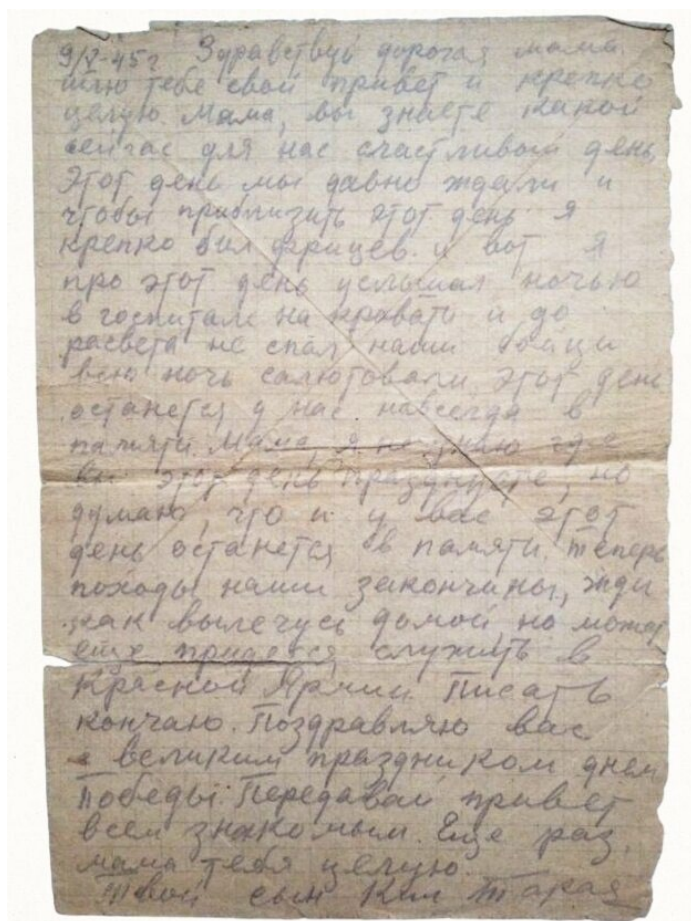 9/V-45г Здравствуй дорогая мама
шлю тебе свой привет и крепко
целую. Мама, вы знаете какой
сейчас для нас счастливый день
этот день мы давно ждали и
чтобы приблизить этот день я
крепко бил фрицев. и вот я
про этот день услышал ночью
в госпитале на кровати и до
расвета не спал наши бойцы
всю ночь салютовали. этот день
останется у нас навсегда в
памяти. Мама, я не знаю где
вы этот день празднуете, но
думаю, что и у вас этот
день останется в памяти. Теперь
походы наши закончины, жди
как вылечусь домой но может
еще придется служить в
Красной Армии. Писать
кончаю. Поздравляю вас
с великим праздником днем
Победы. Передавай привет
всем знакомым. Еще раз,
мама тебя целую.
Твой сын Ким